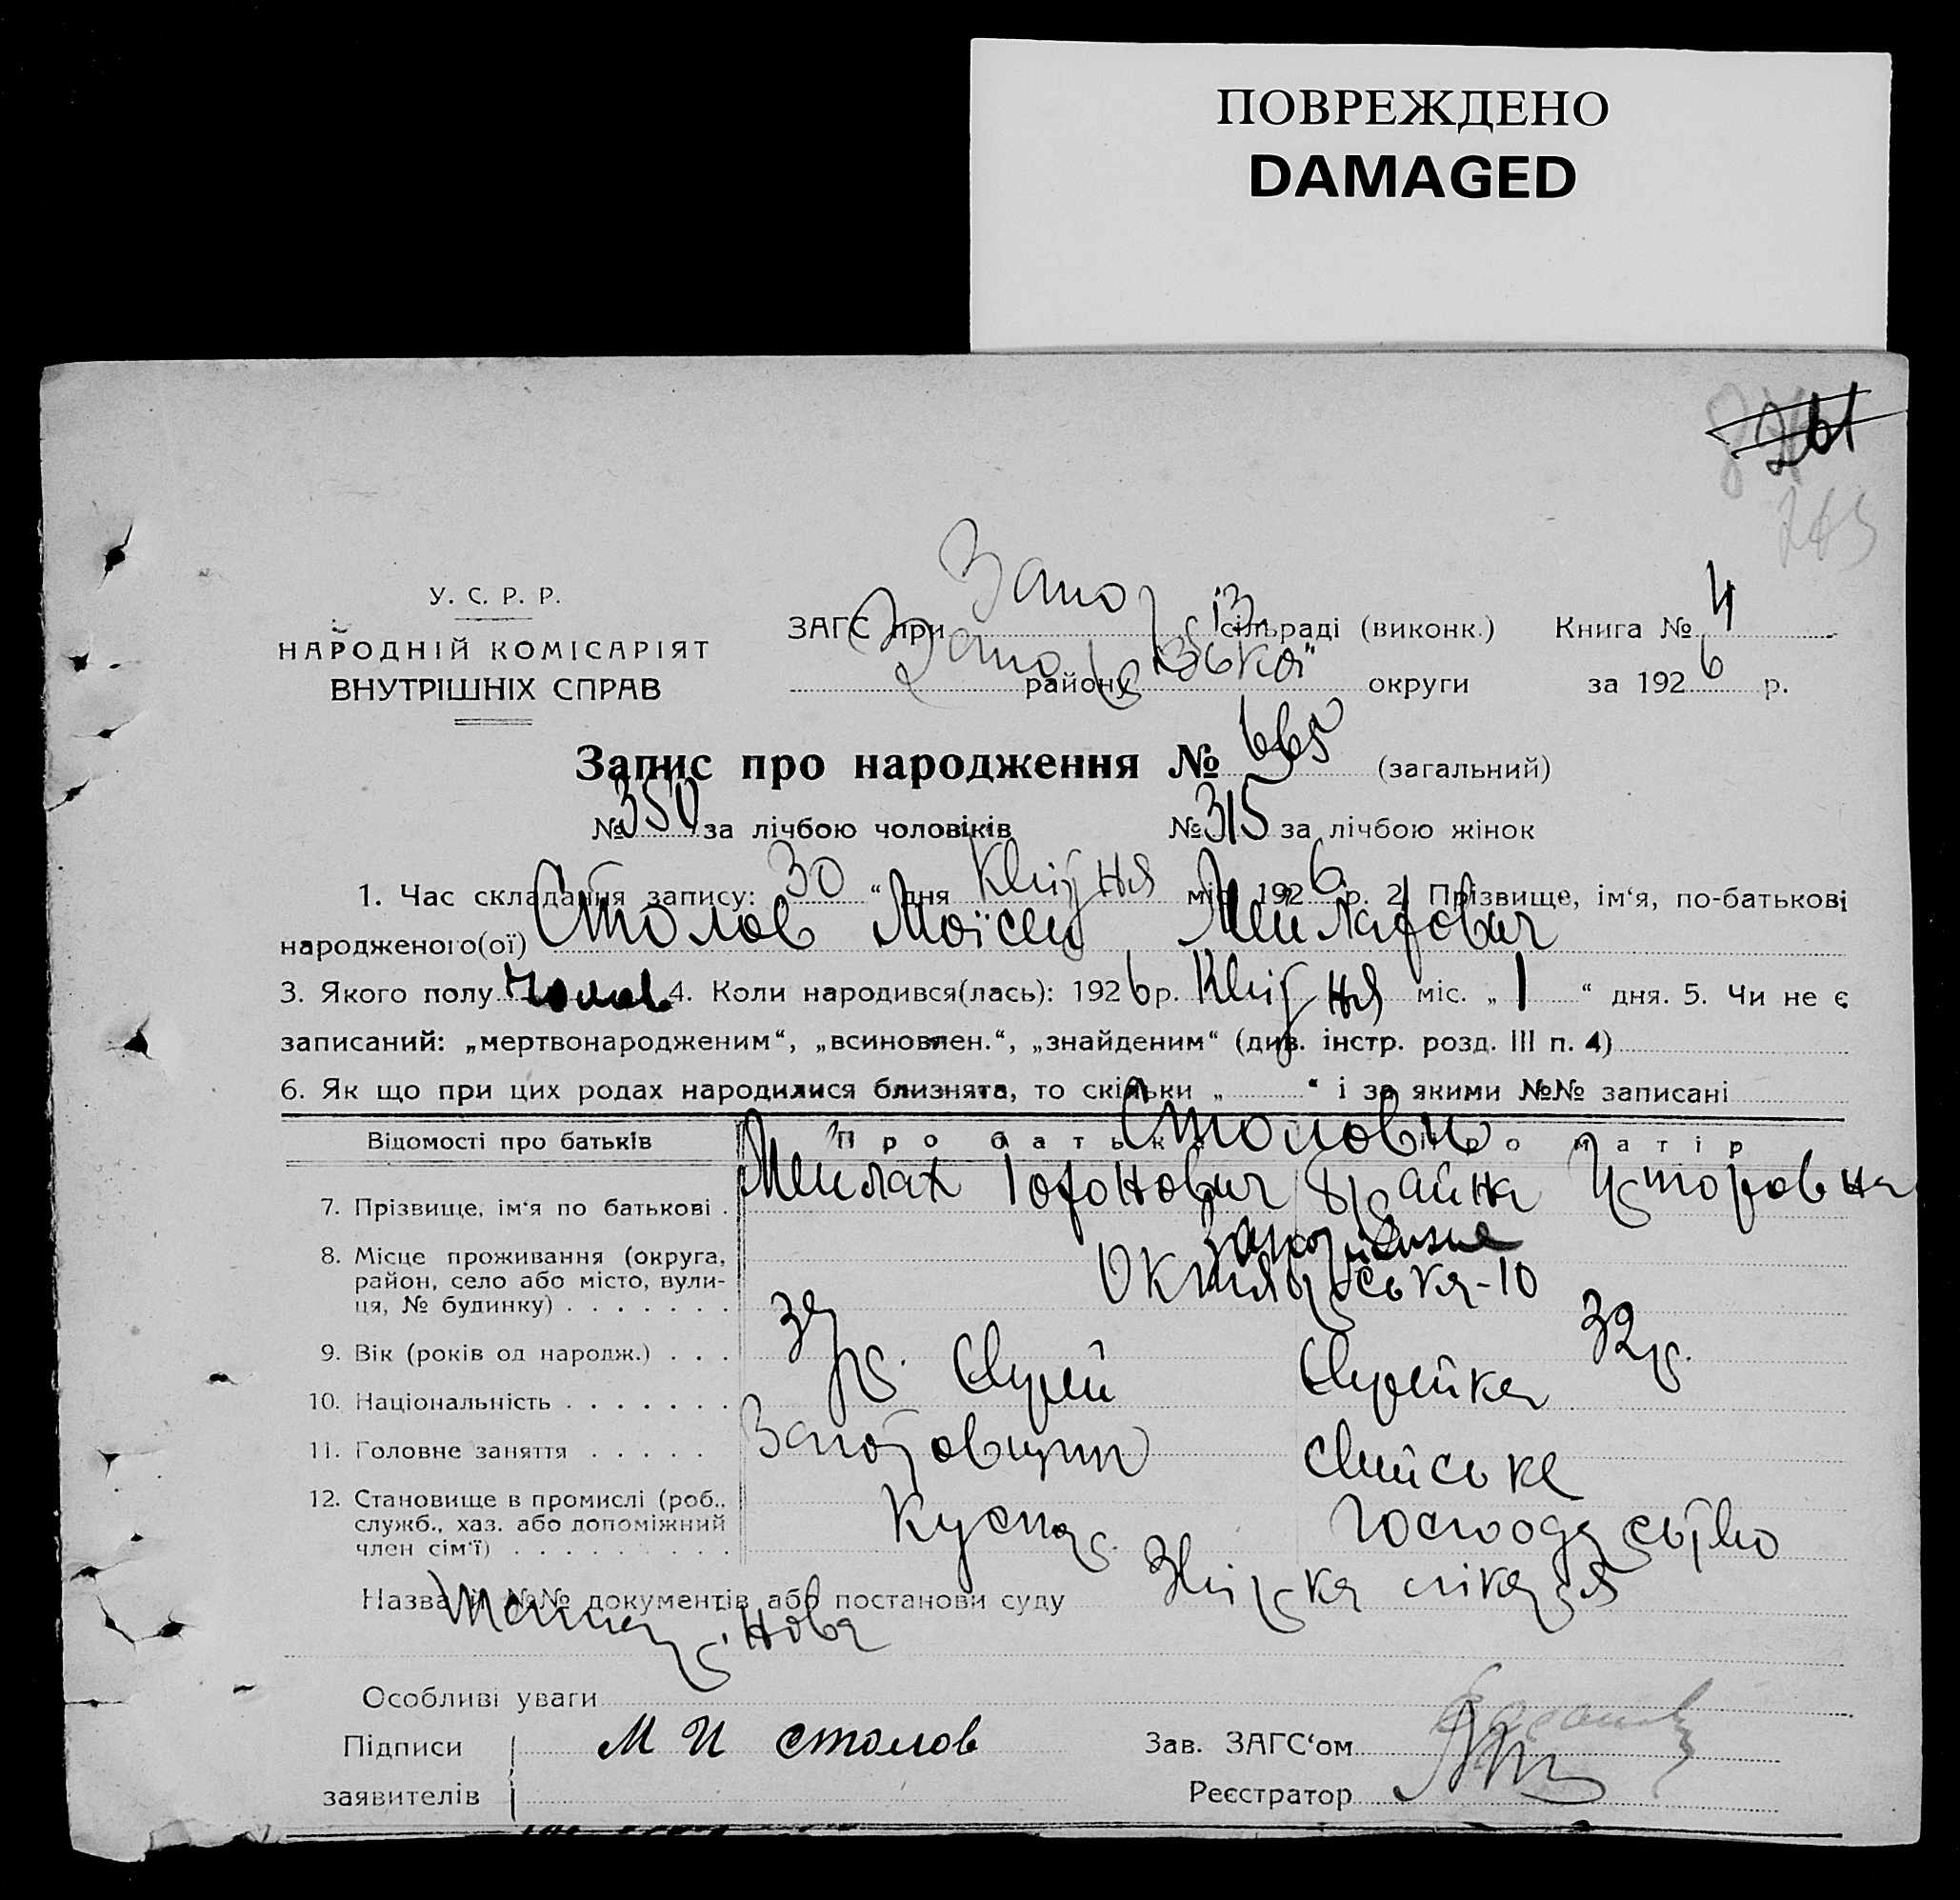 ПОВРЕЖДЕНО
DAMAGED
261
У. С. Р. Р.
НАРОДНІЙ КОМІСАРІЯТ
ВНУТРІШНІХ СПРАВ
ЗАГС при Запоріз сільраді (виконк.) Книга № 4
району Запорізької округи за 1926 р.
Запис про народження № 665 (загальний)
№ 350 за лічбою чоловіків № 315 за лічбою жінок
1. Час складання запису: 30 “ дня Квітня міс. 1926 р. 2. Прізвище, ім‘я, по-батькові
народженого(ої) Столов Моїсей Мейлахович
3. Якого полу чолов 4. Коли народився(лась): 1926 р. Квітня міс. „ 1 “ дня. 5. Чи не є
записаний: „мертвонародженим“, „всиновлен.“, „знайденим“ (див. інстр. розд. III п. 4)
6. Як що при цих родах народилися близнята, то скільки „ “ і за якими №№ записані
Відомості про батьків Про батька Про матір
Столови
7. Прізвище, ім‘я по батькові . Мейлах
8. Місце проживання (округа, район, село або місто, вулиця, № будинку) . . . . . . . Запоріжжє
Октябрська-10
9. Вік (років од народж.) . . . 32 р.
10. Національність . . . . . . . Єврей Єврейка
11. Головне заняття . . . . . Заготовщик
12. Становище в промислі (роб., служб., хаз. або допоміжний член сім‘ї) . . . . . . . . . Кустар. господарство
Назва й №№ документів або постанови суду Звістка лікаря
Особливі уваги
Підписи заявителів М И Столов
Зав. ЗАГС‘ом
Реєстратор